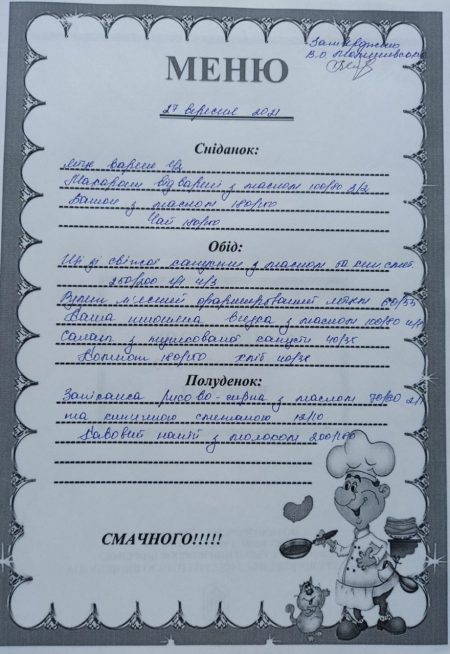 Затверджено
В.о
МЕНЮ
27 вересня 2021
Сніданок:
Яйце варене 1/2
Макарони відварені з маслом 100/80 2/2
Батон з маслом
Чай 180/150
Обід:
Щі зі свіжої капусти з маслом та кип смет.
250/200
Рулет м'ясний фарширований яйцем 60/55
Каша пшонична в'язка з маслом 100/80
Салат з тушкованої капусти 40/35
Компот 180/150 хліб 40/35
Полуденок:
Запіканка рисово-сирна з маслом 70/60
та кип'яченою сметаною 12/10
Кавовий напій з молоком 200/180
СМАЧНОГО!!!!!